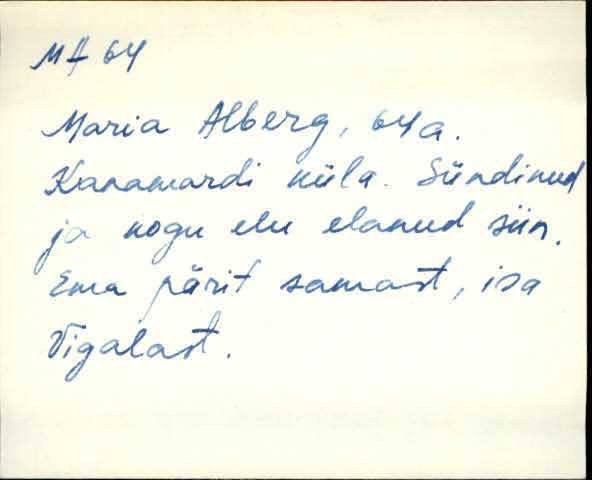 MA 64
Maria Alberg, 64 a.
Kanamardi küla. Sündinud
ja kogu elu elanud siin.
Ema pärit samast, isa
Vigalast.